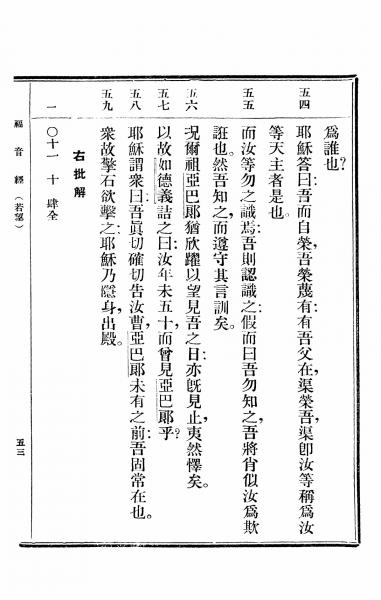 爲誰也?
五四 耶穌答曰:吾而自榮,吾榮蔑有,有吾父在,渠榮吾,渠卽汝等稱爲汝
等天主者是也。
五五 而汝等勿之識焉:吾則認識之,假而曰吾勿知之,吾將肖似汝爲欺
誑也。然吾知之,而遵守其言訓矣。
五六 况爾祖亞巴郞,猶欣躍以望見吾之日,亦旣見止,夷然懌矣。
五七 以故如德義詰之曰:汝年未五十,而曾見亞巴郞乎?
五八 耶穌謂衆曰:吾眞切確切告汝曹,亞巴郞未有之前,吾固常在也。
五九 衆故擎石欲擊之:耶穌乃隱身出殿。
右批解
一 〇十一 十 肆全
福音經(若望) 五三